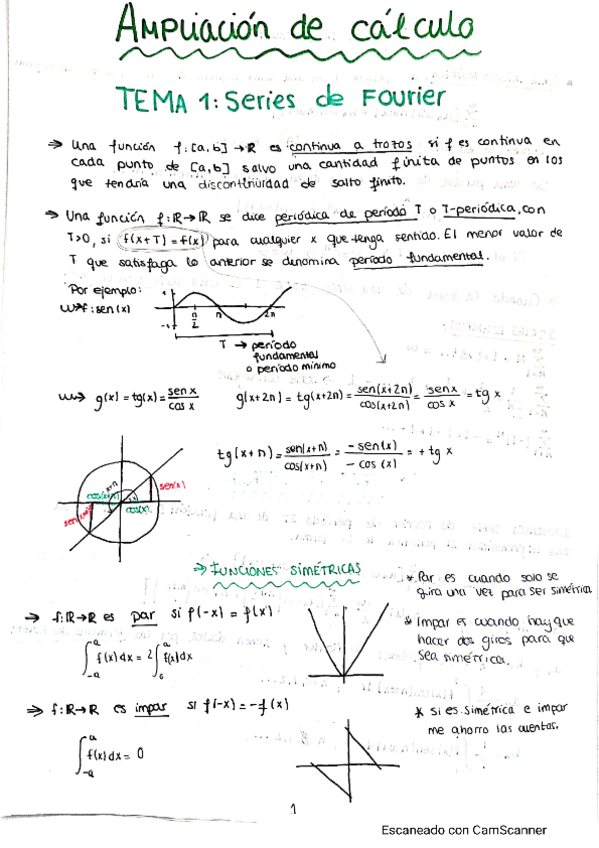 AMPLIACIÓN DE CÁLCULO
TEMA 1: Series de FOURIER
→ Una función f: [a,b] → ℝ es continua a trozos si f es continua en
cada punto de [a,b] salvo una cantidad finita de puntos en los
que tendría una discontinuidad de salto finito.
→ Una función f: ℝ→ℝ se dice periódica de período T o T-periódica, con
T>0, si f(x+T) = f(x) para cualquier x que tenga sentido. El menor valor de
T que satisfaga lo anterior se denomina período fundamental.
Por ejemplo:
f: sen(x)
1
-1
π/2 π 2π
T → período
fundamental
o período mínimo
g(x) = tg(x) = sen x / cos x g(x+2π) = tg(x+2π) = sen(x+2π) / cos(x+2π) = sen x / cos x = tg x
tg(x+π) = sen(x+π) / cos(x+π) = -sen(x) / -cos(x) = + tg x
x+π
cos(x+π)
sen(x)
sen(x+π)
cos(x)
→ FUNCIONES SIMÉTRICAS
* Par es cuando solo se
gira una vez para ser simétrica
→ f: ℝ→ℝ es par si f(-x) = f(x)
* Impar es cuando hay que
hacer dos giros para que
sea simétrica.
∫_{-a}^{a} f(x)dx = 2∫_{0}^{a} f(x)dx
→ f: ℝ→ℝ es impar si f(-x) = -f(x)
* si es simétrica e impar
me ahorro las cuentas.
∫_{-a}^{a} f(x)dx = 0
1
Escaneado con CamScanner